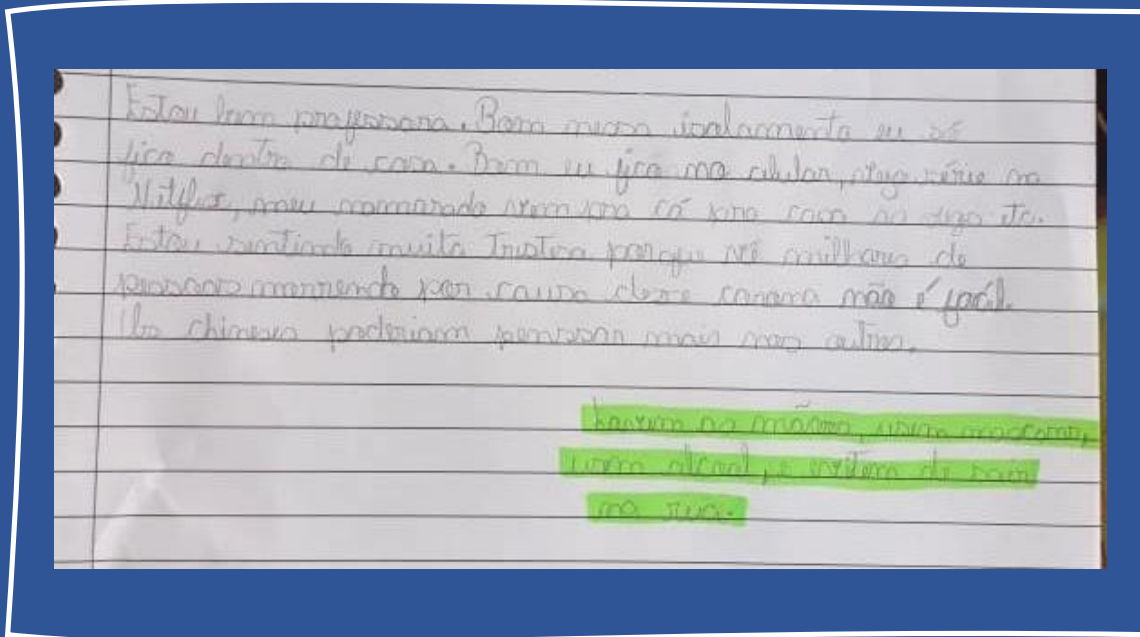 Estou bem professora. Bom nesse isolamento eu só
fico dentro de casa. Bom eu fico no celular, vejo série na
Netflix, meu namorado vem pra cá pra casa as vezes etc.
Estou sentindo muita Tristeza porque vê milhares de
pessoas morrendo por causa desse corona não é fácil.
Os chineses poderiam pensar mais nos outros.
Lavem as mãos, usem mascara,
usem alcool, e evitem de sair
na rua.